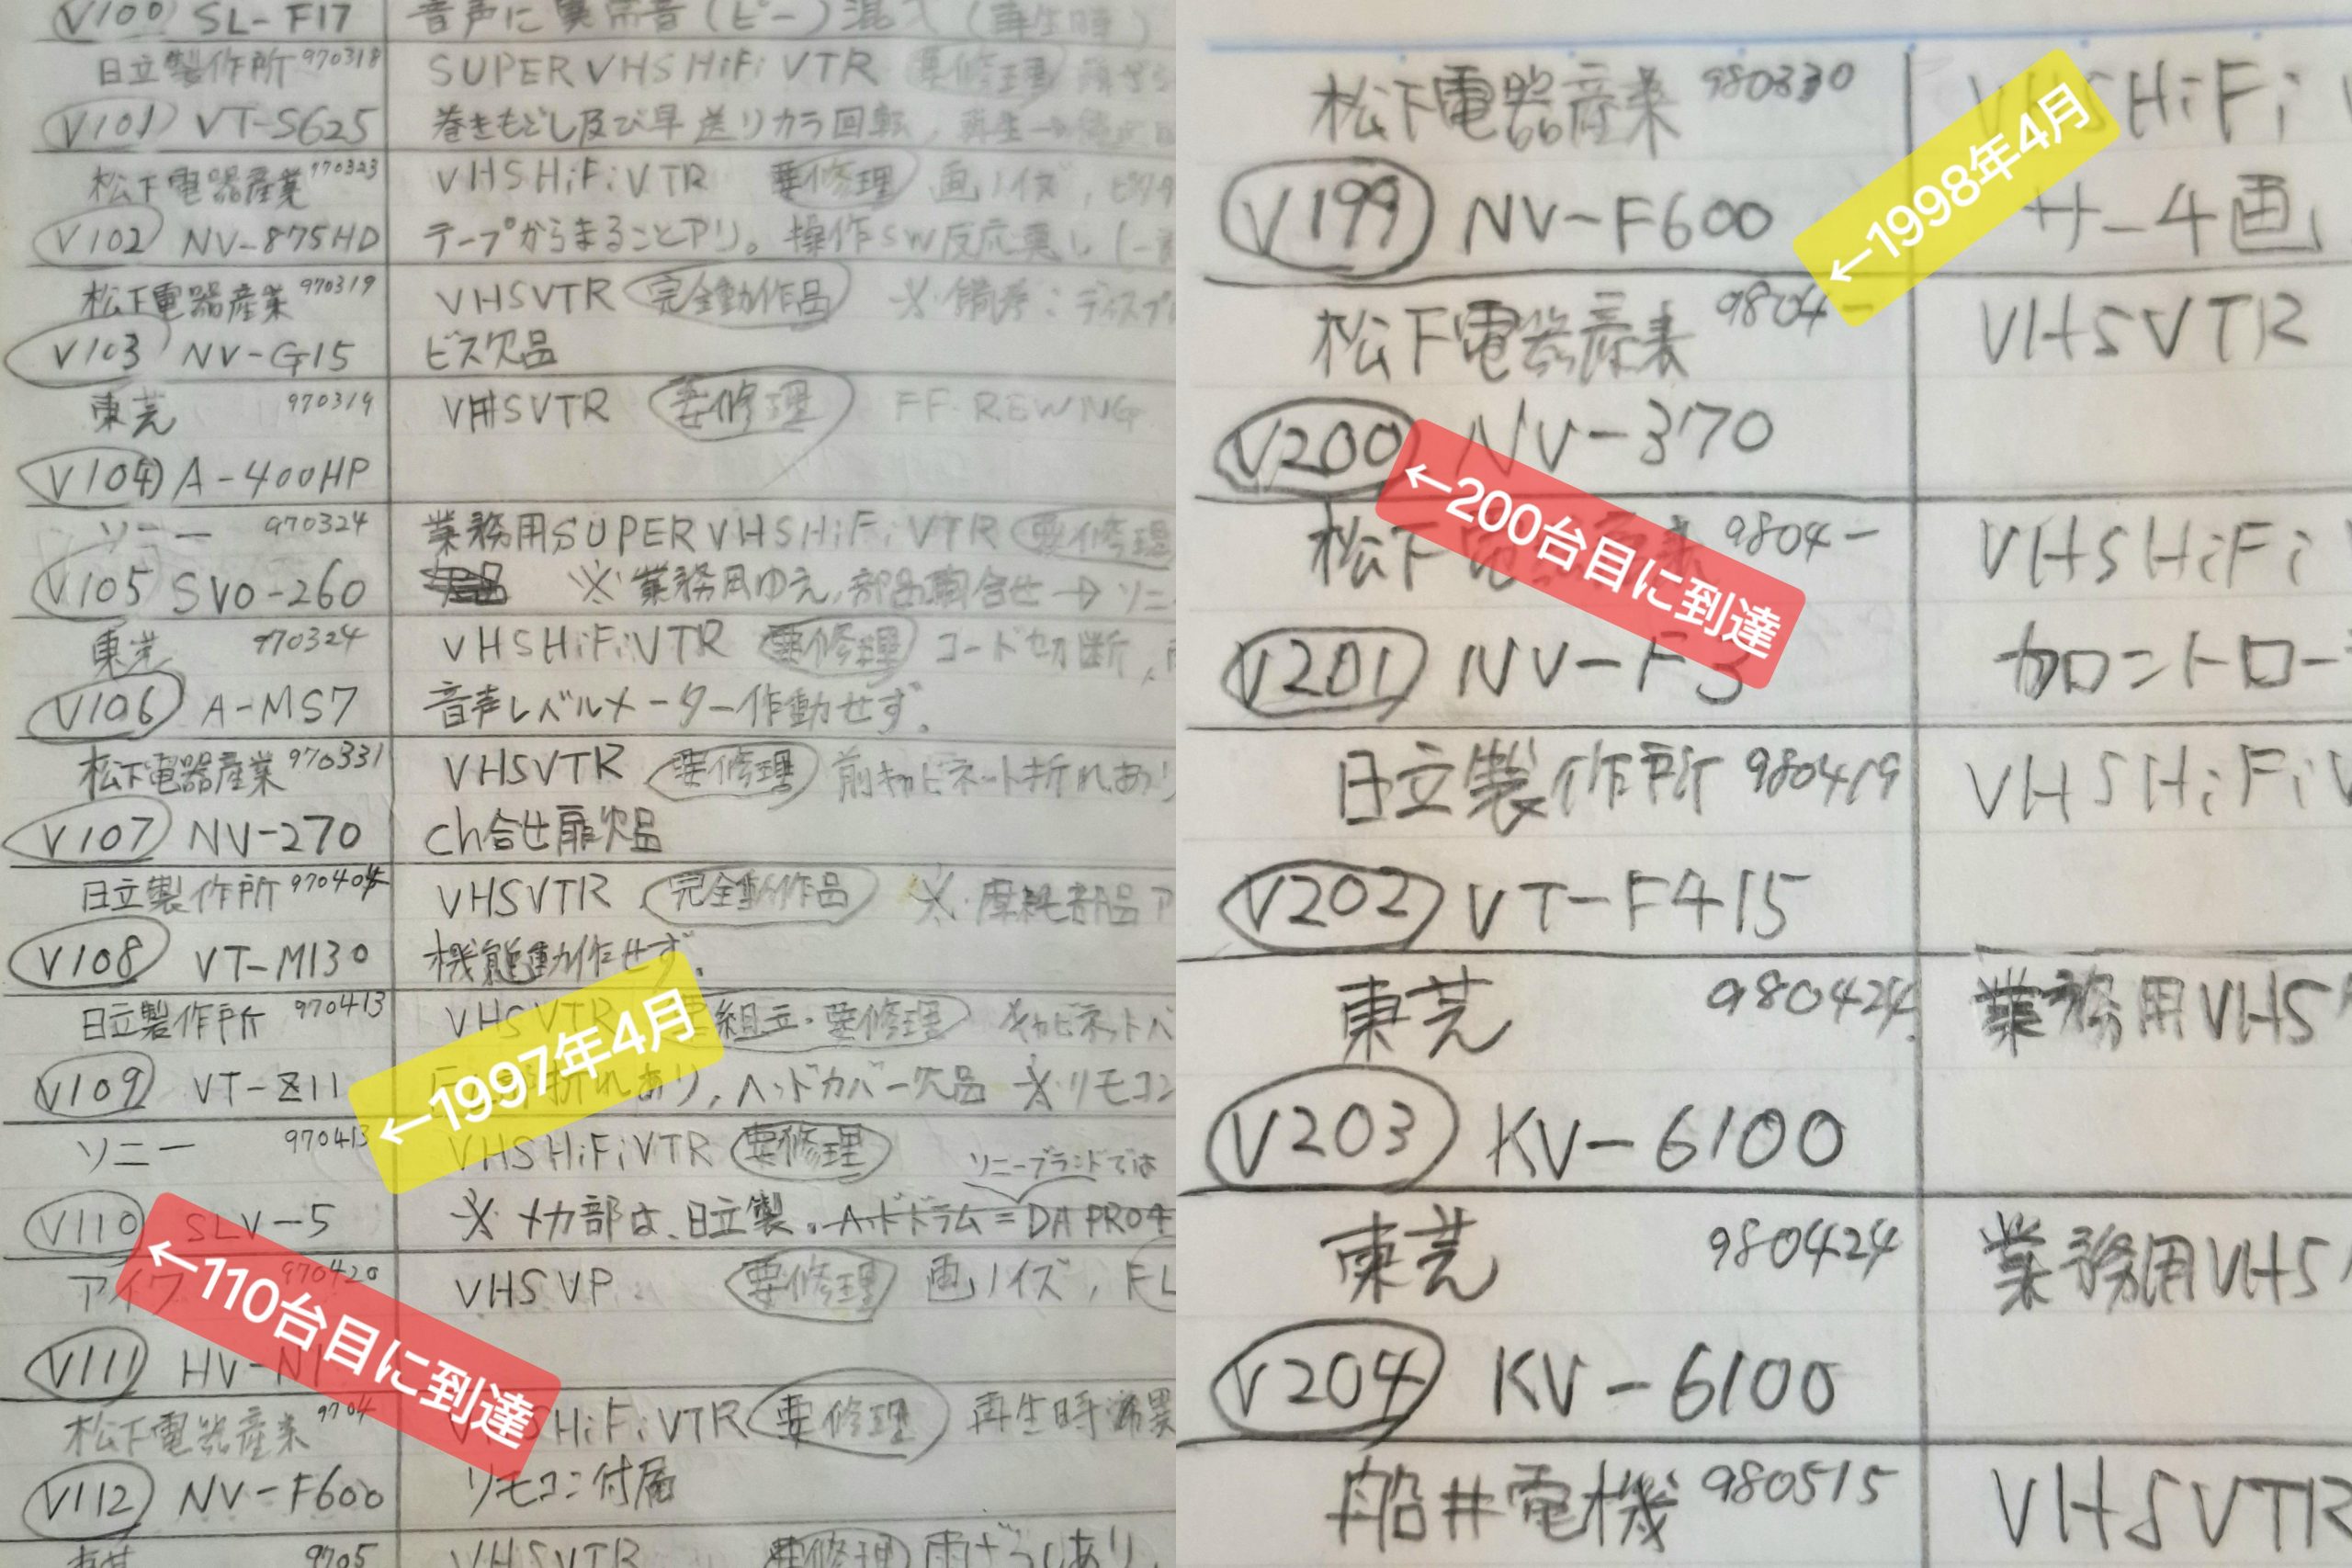 V100 SL-F17 音声に異常音(ピー)混入(再生時)
日立製作所 970318 SUPER VHS HiFi VTR 要修理
V101 VT-S625 巻きもどし及び早送りカラ回転, 再生→
松下電器産業 970323 VHS HiFi VTR 要修理 画ノイズ,
V102 NV-875HD テープからまることアリ。操作SW反応悪し
松下電器産業 970319 VHSVTR 完全動作品 ※備考:ディスプ
V103 NV-G15 ビス欠品
東芝 970319 VHSVTR 要修理 FF・REW NG
V104 A-400HP
ソニー 970324 業務用SUPER VHS HiFi VTR 要修理
V105 SVO-260 ※業務用ゆえ,部品問合せ→ソニ
東芝 970324 VHS HiFi VTR 要修理 コード切断,
V106 A-MS7 音声レベルメーター作動せず.
松下電器産業 970331 VHSVTR 要修理 前キャビネット折れあり
V107 NV-270 ch合せ扉欠品
日立製作所 970404 VHSVTR 完全動作品 ※摩耗部品ア
V108 VT-M130 機能動作せず.
日立製作所 970413 VHSVTR 要組立・要修理 キャビネット
←1997年4月
V109 VT-Z11 折れあり,ヘッドカバー欠品 ※リモコン
ソニー 970413 VHS HiFi VTR 要修理 ソニーブランドでは
V110 SLV-5 ※メカ部は、日立製。ヘッドドラム=DA PRO4
←110台目に到達
アイワ 970420 VHSVP 要修理 画ノイズ, FL
V111 HV-N1
松下電器産業 9704 VHS HiFi VTR 要修理 再生時
V112 NV-F600 リモコン付属
9705 VHSVTR 要修理 雨ざらしあり,
松下電器産業 980330 VHS HiFi V
←1998年4月
V199 NV-F600 サーチ画
松下電器産業 9804- VHSVTR
V200 NV-370
←200台目に到達
松下電器産業 9804- VHS HiFi
V201 NV-F3
日立製作所 980419 VHS HiFi V
V202 VT-F415
東芝 980424 業務用VHS
V203 KV-6100
東芝 980424 業務用VHS
V204 KV-6100
船井電機 980515 VHSVTR